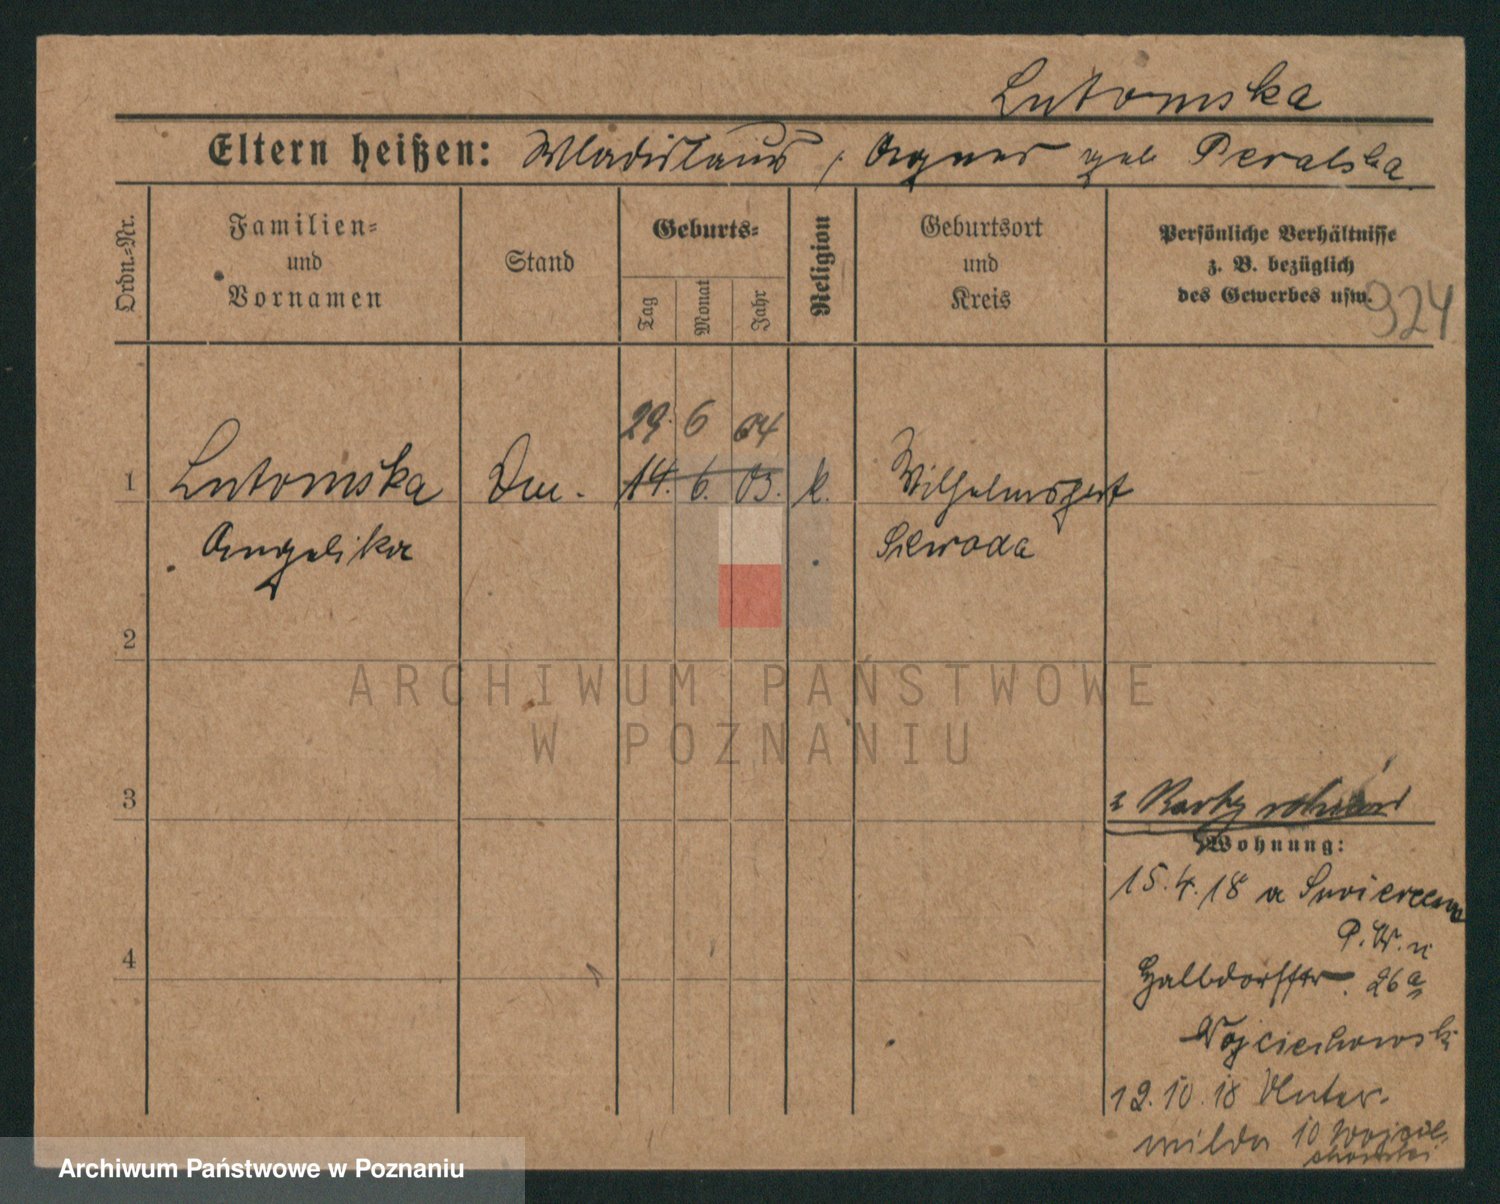 Lutomska
Eltern heißen: Wladislaus / Agnes geb Peralska
Ordn.-Nr.
Familien-
und
Vornamen
Stand
Geburts-
Tag
Monat
Jahr
Religion
Geburtsort
und
Kreis
Persönliche Verhältnisse
z. B. bezüglich
des Gewerbes usw.
324
29. 6 04
1 Lutomska 14. 6. 03. k. Wilhelmshorst
Angelika
2
3
Wohnung:
15.4.18 a
P.W.
4
Halbdorfstr. 26a
Wojciechowski
12.10.18 Unter-
wilda 10 Wojcie-
chowski
ARCHIWUM PAŃSTWOWE
W POZNANIU
Archiwum Państwowe w Poznaniu